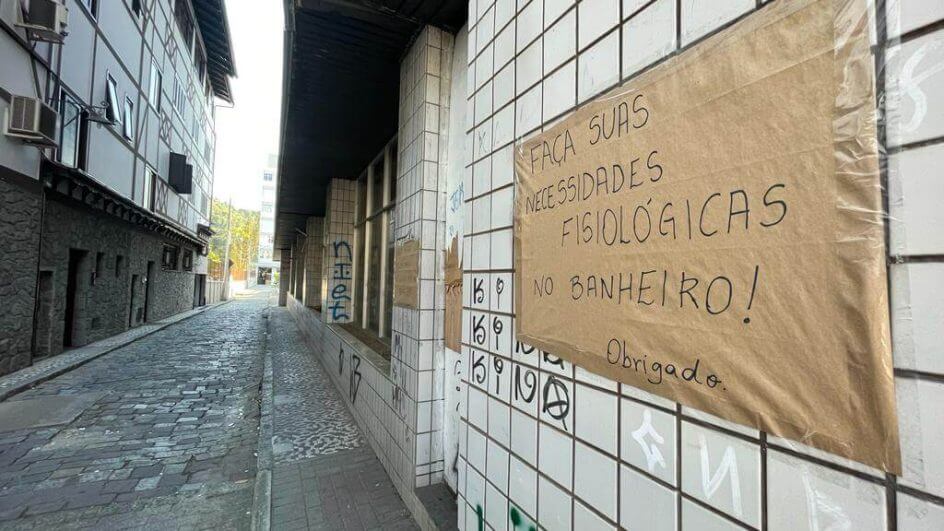 FAÇA SUAS
NECESSIDADES
FISIOLÓGICAS
NO BANHEIRO!
Obrigado.